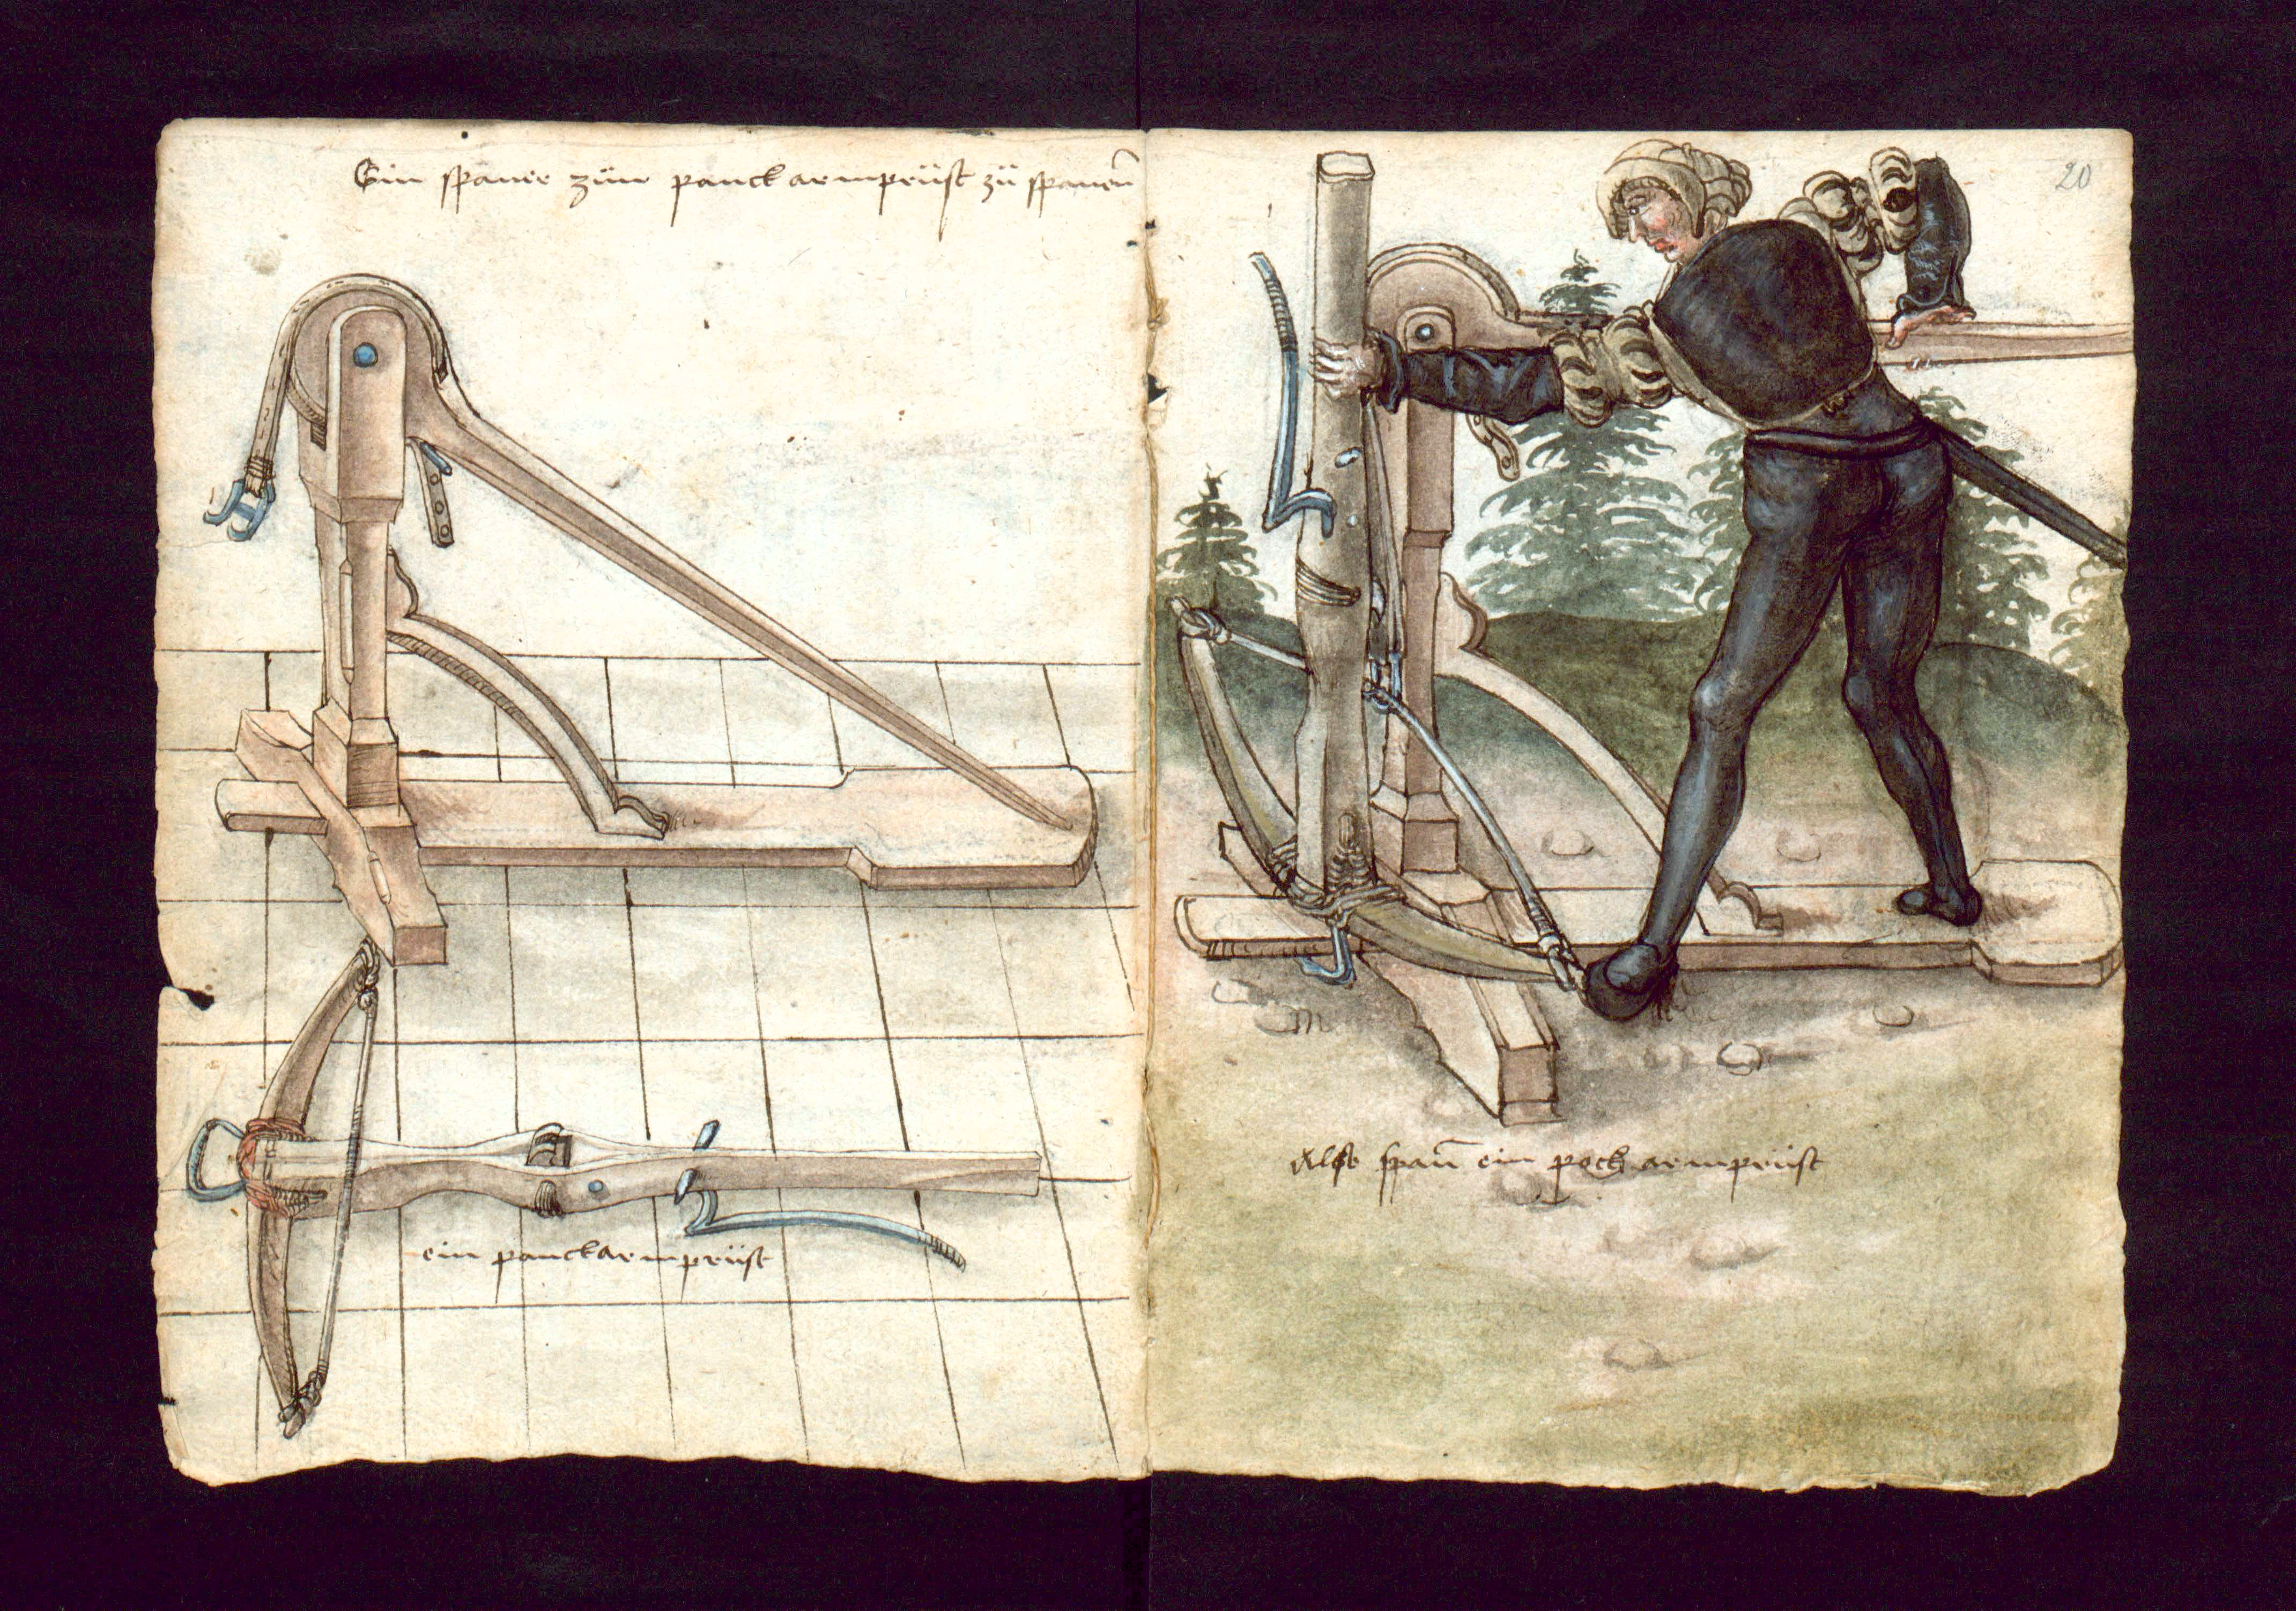 Ein spaner zům panckarmprüst zů spanen̄
ein panckarmprüst
20
Alse span̄ ein pock armprüst